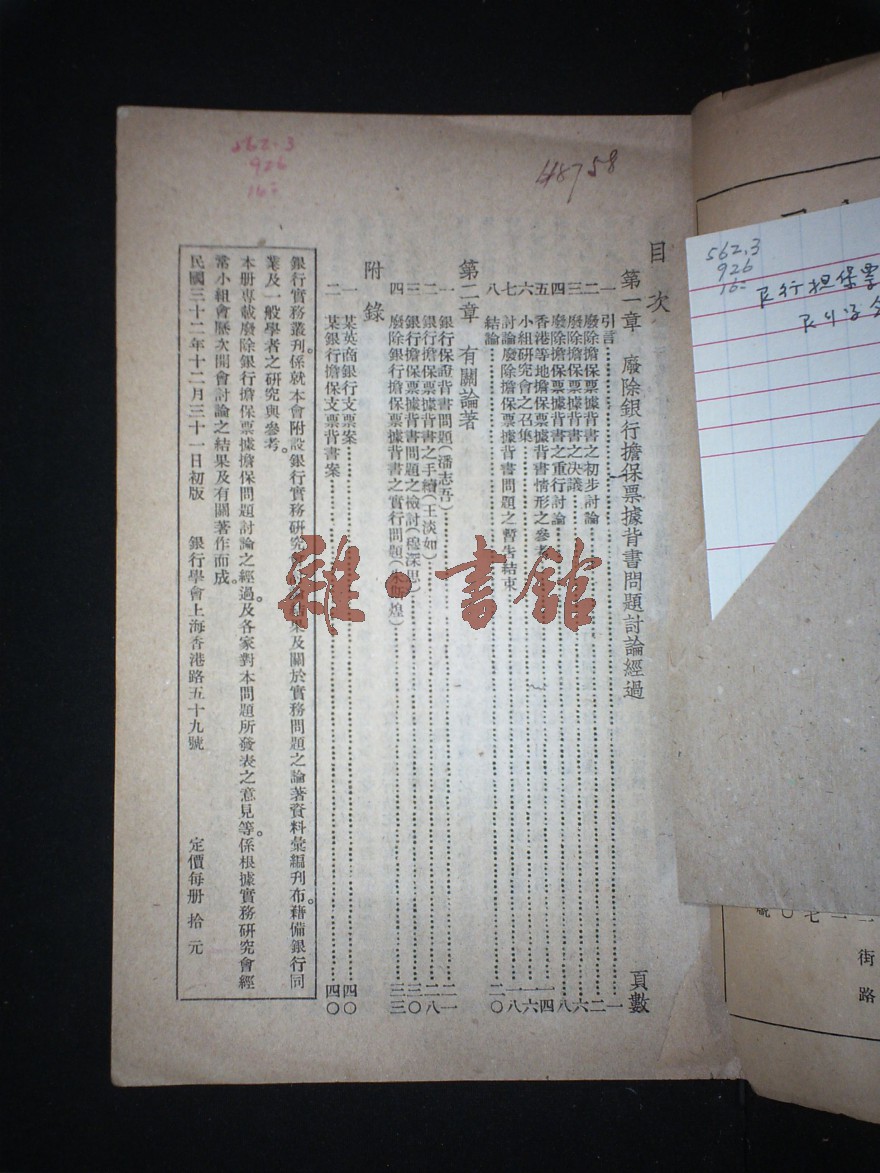 562.3
926
48758
目次
頁數
第一章 廢除銀行擔保票據背書問題討論經過
一 引言 一
二 廢除擔保票據背書之初步討論 二
三 廢除擔保票據背書之決議 六
四 廢除擔保票據背書之重行討論 八
五 香港等地擔保票據背書情形之參考 一四
六 小組研究會之召集 一六
七 討論廢除擔保票據背書問題之暫告結束 一八
八 結論 二〇
第二章 有關論著
一 銀行保證背書問題(潘志吾) 二一
二 銀行擔保票據背書之手續(王淡如) 二八
三 銀行擔保票據背書問題之檢討(穆深思) 三〇
四 廢除銀行擔保票據背書之實行問題(朱斯煌) 三三
附錄
一 某英商銀行支票案 四〇
二 某銀行擔保支票背書案 四〇
銀行實務叢刊。係就本會附設銀行實務研究會 結果及關於實務問題之論著資料彙編刊布。藉備銀行同
業及一般學者之研究與參考。
本册專載廢除銀行擔保票據擔保問題討論之經過。及各家對本問題所發表之意見等。係根據實務研究會經
常小組會歷次開會討論之結果及有關著作而成。
民國三十二年十二月三十一日初版 銀行學會上海香港路五十九號 定價每册拾元
雜·書館
562.3
926
街
路